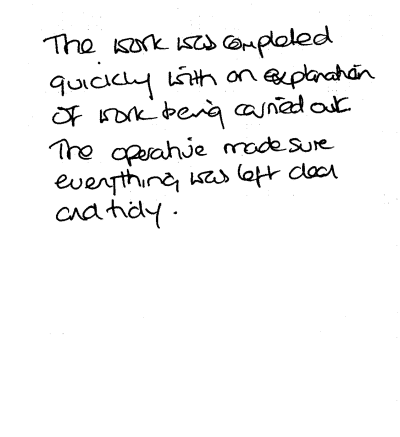 The work was completed
quickly with an explanation
of work being carried out.
The operative made sure
everything was left clean
and tidy.